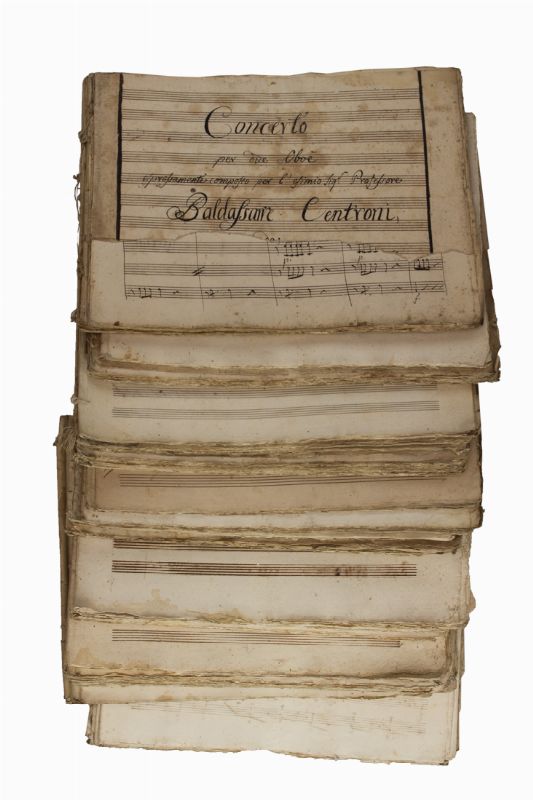 Concerto
per due Oboe
espressamente composto per l'esimio Sigr Professore
Baldassare Centroni,